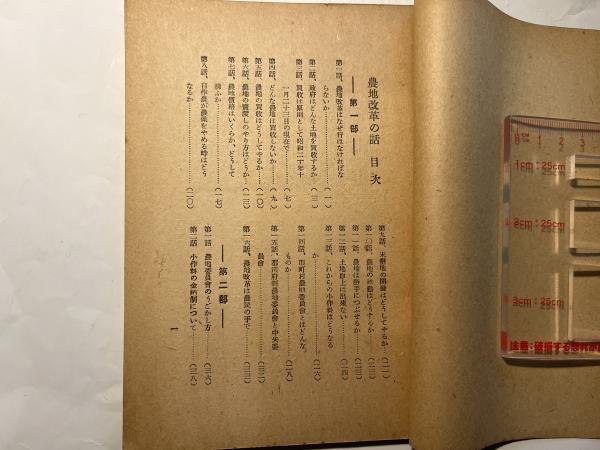 農地改革の話 目次
── 第一部 ──
第一話、農地改革はなぜ行はなければな
らないか………(一)
第二話、政府はどんな土地を買收するか…(三)
第三話、買收は原則として昭和二十年十
一月二十三日の現在で………(七)
第四話、どんな農地は買收しないか……(九)
第五話、農地の買收はどうしてやるか…(一〇)
第六話、農地の賣渡しのやり方はどうか…(一三)
第七話、農地價格はいくらか、どうして
拂ふか………(一七)
第八話、自作農が農業をやめる時はどう
なるか………(二〇)
第九話、未墾地の開發はどうしてやるか…(二一)
第一〇話、農地の移動はどうするか
第一一話、農地は勝手につぶせるか
第一二話、土地取上は出來ない……(二四)
第一三話、これからの小作料はどうなる
か………(二六)
第一四話、市町村農地委員會とはどんな
ものか………(二八)
第一五話、都道府縣農地委員會と中央委
員會………(三二)
第一六話、農地改革は農民の手で……(三三)
── 第二部 ──
第一話 農地委員會のうごかし方……(三六)
第二話 小作料の金納制について……(三八)
1
0 1 2 3
1cm:25cm
2cm:25cm
3cm:25cm
注意:破損する恐れが